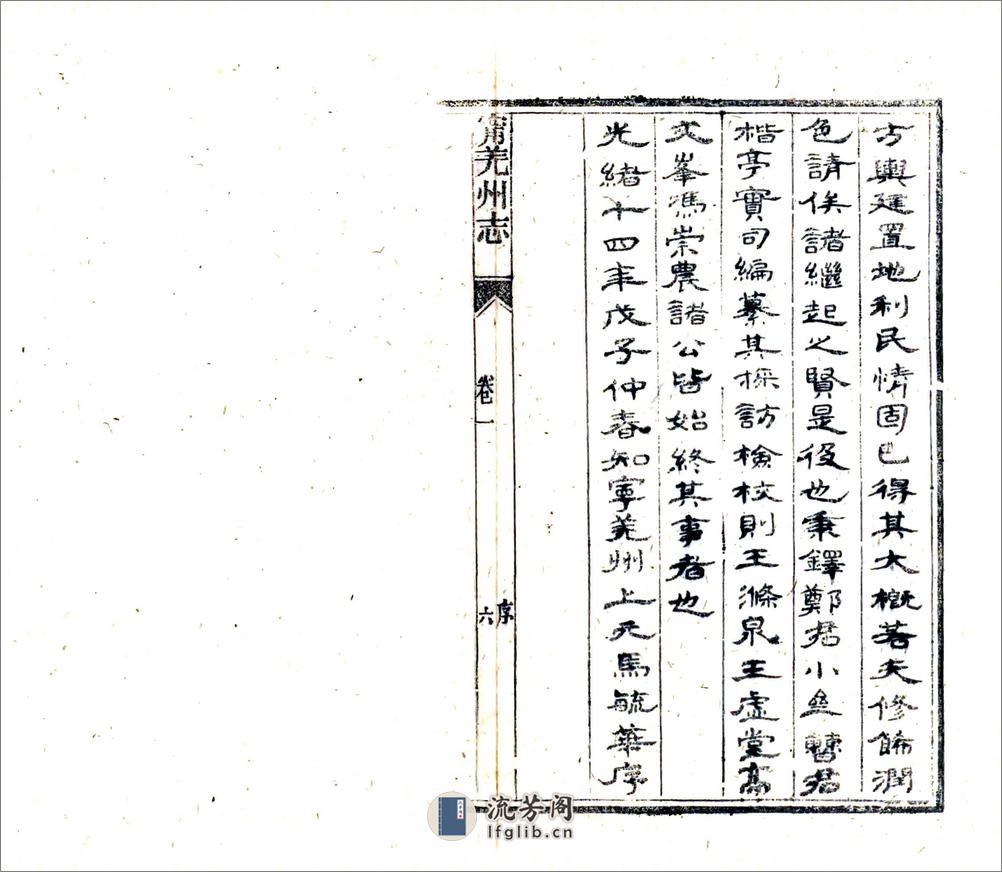 方輿建置地利民情固已得其大概若夫修飾潤
色請俟諸繼起之賢是役也秉鐸鄭君小垒暨君
楷亭實司編纂其採訪檢校則王滌泉王虛堂高
文峯馮崇農諸公皆始終其事者也
光緒十四年戊子仲春知寧羌州上元馬毓華序
甯羌州志
卷一
序
六
流芳阁
lfglib.cn